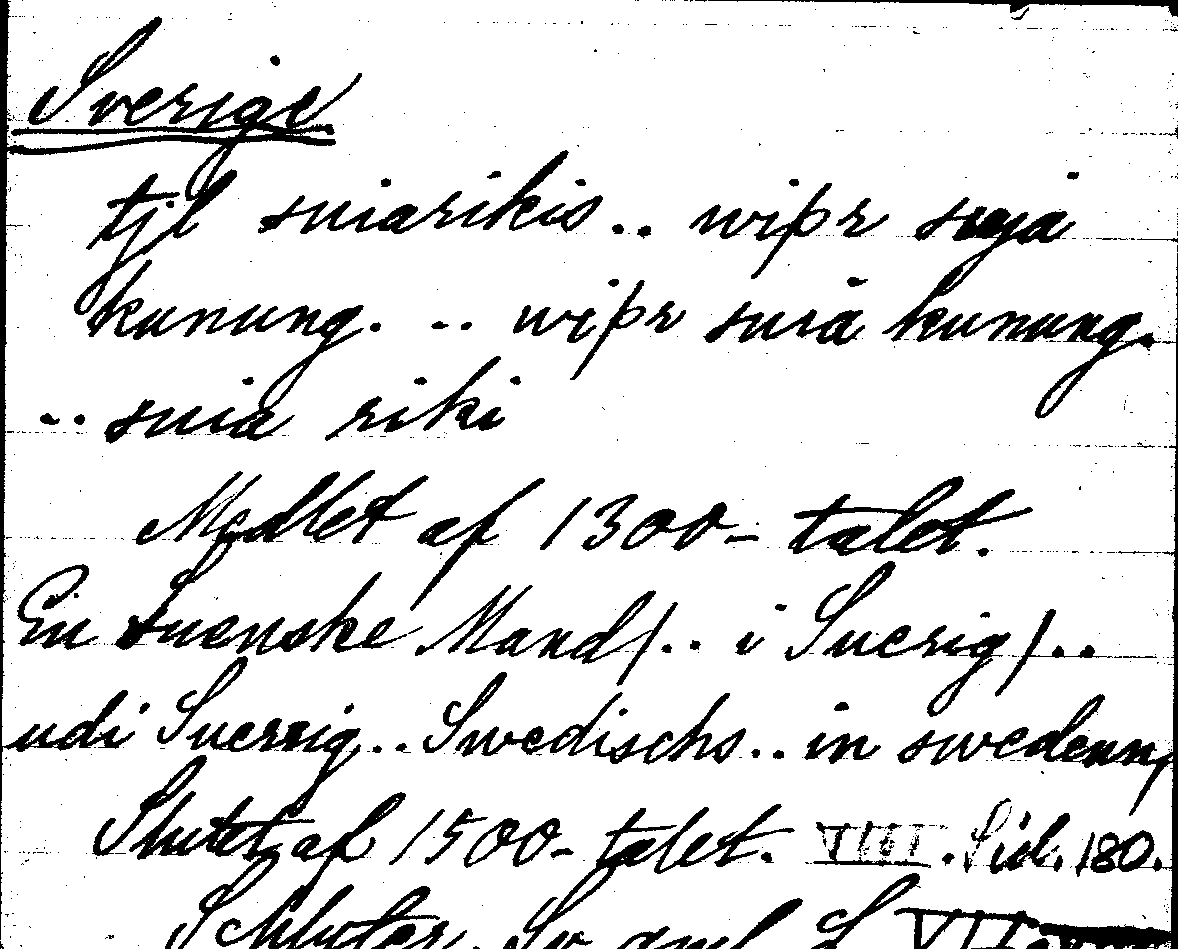 Sverige
til suiarikis.. wiþr suja
kunung. .. wiþr suia kunung.
.. suia riki
Medlet af 1300-talet.
En Suenske Mand/.. i Suerig/..
udi Suerrig.. Swedischs.. in swedenn/
Slutet af 1500-talet. VIII. Sid. 180.
Schlyter. Sv. gml. L. VII